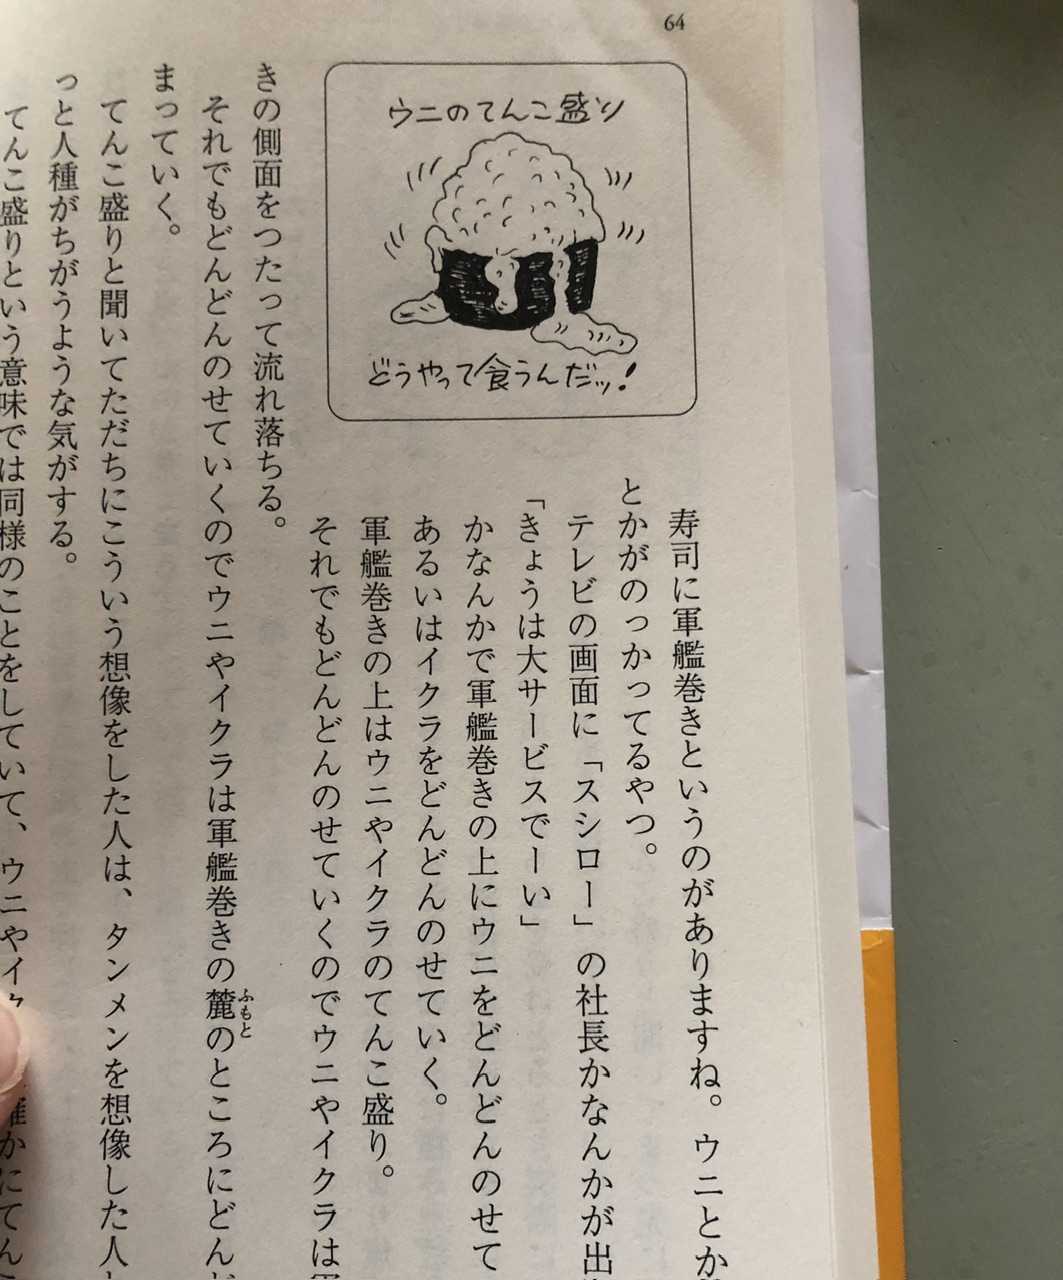 64
ウニのてんこ盛り
どうやって食うんだッ!
寿司に軍艦巻きというのがありますね。ウニとか
とかがのっかってるやつ。
テレビの画面に「スシロー」の社長かなんかが出
「きょうは大サービスでーい」
かなんかで軍艦巻きの上にウニをどんどんのせて
あるいはイクラをどんどんのせていく。
軍艦巻きの上はウニやイクラのてんこ盛り。
それでもどんどんのせていくのでウニやイクラは
きの側面をつたって流れ落ちる。
それでもどんどんのせていくのでウニやイクラは軍艦巻きの麓のところにどん
ふもと
まっていく。
てんこ盛りと聞いてただちにこういう想像をした人は、タンメンを想像した人
っと人種がちがうような気がする。
てんこ盛りという意味では同様のことをしていて、ウニやイ
かにてん